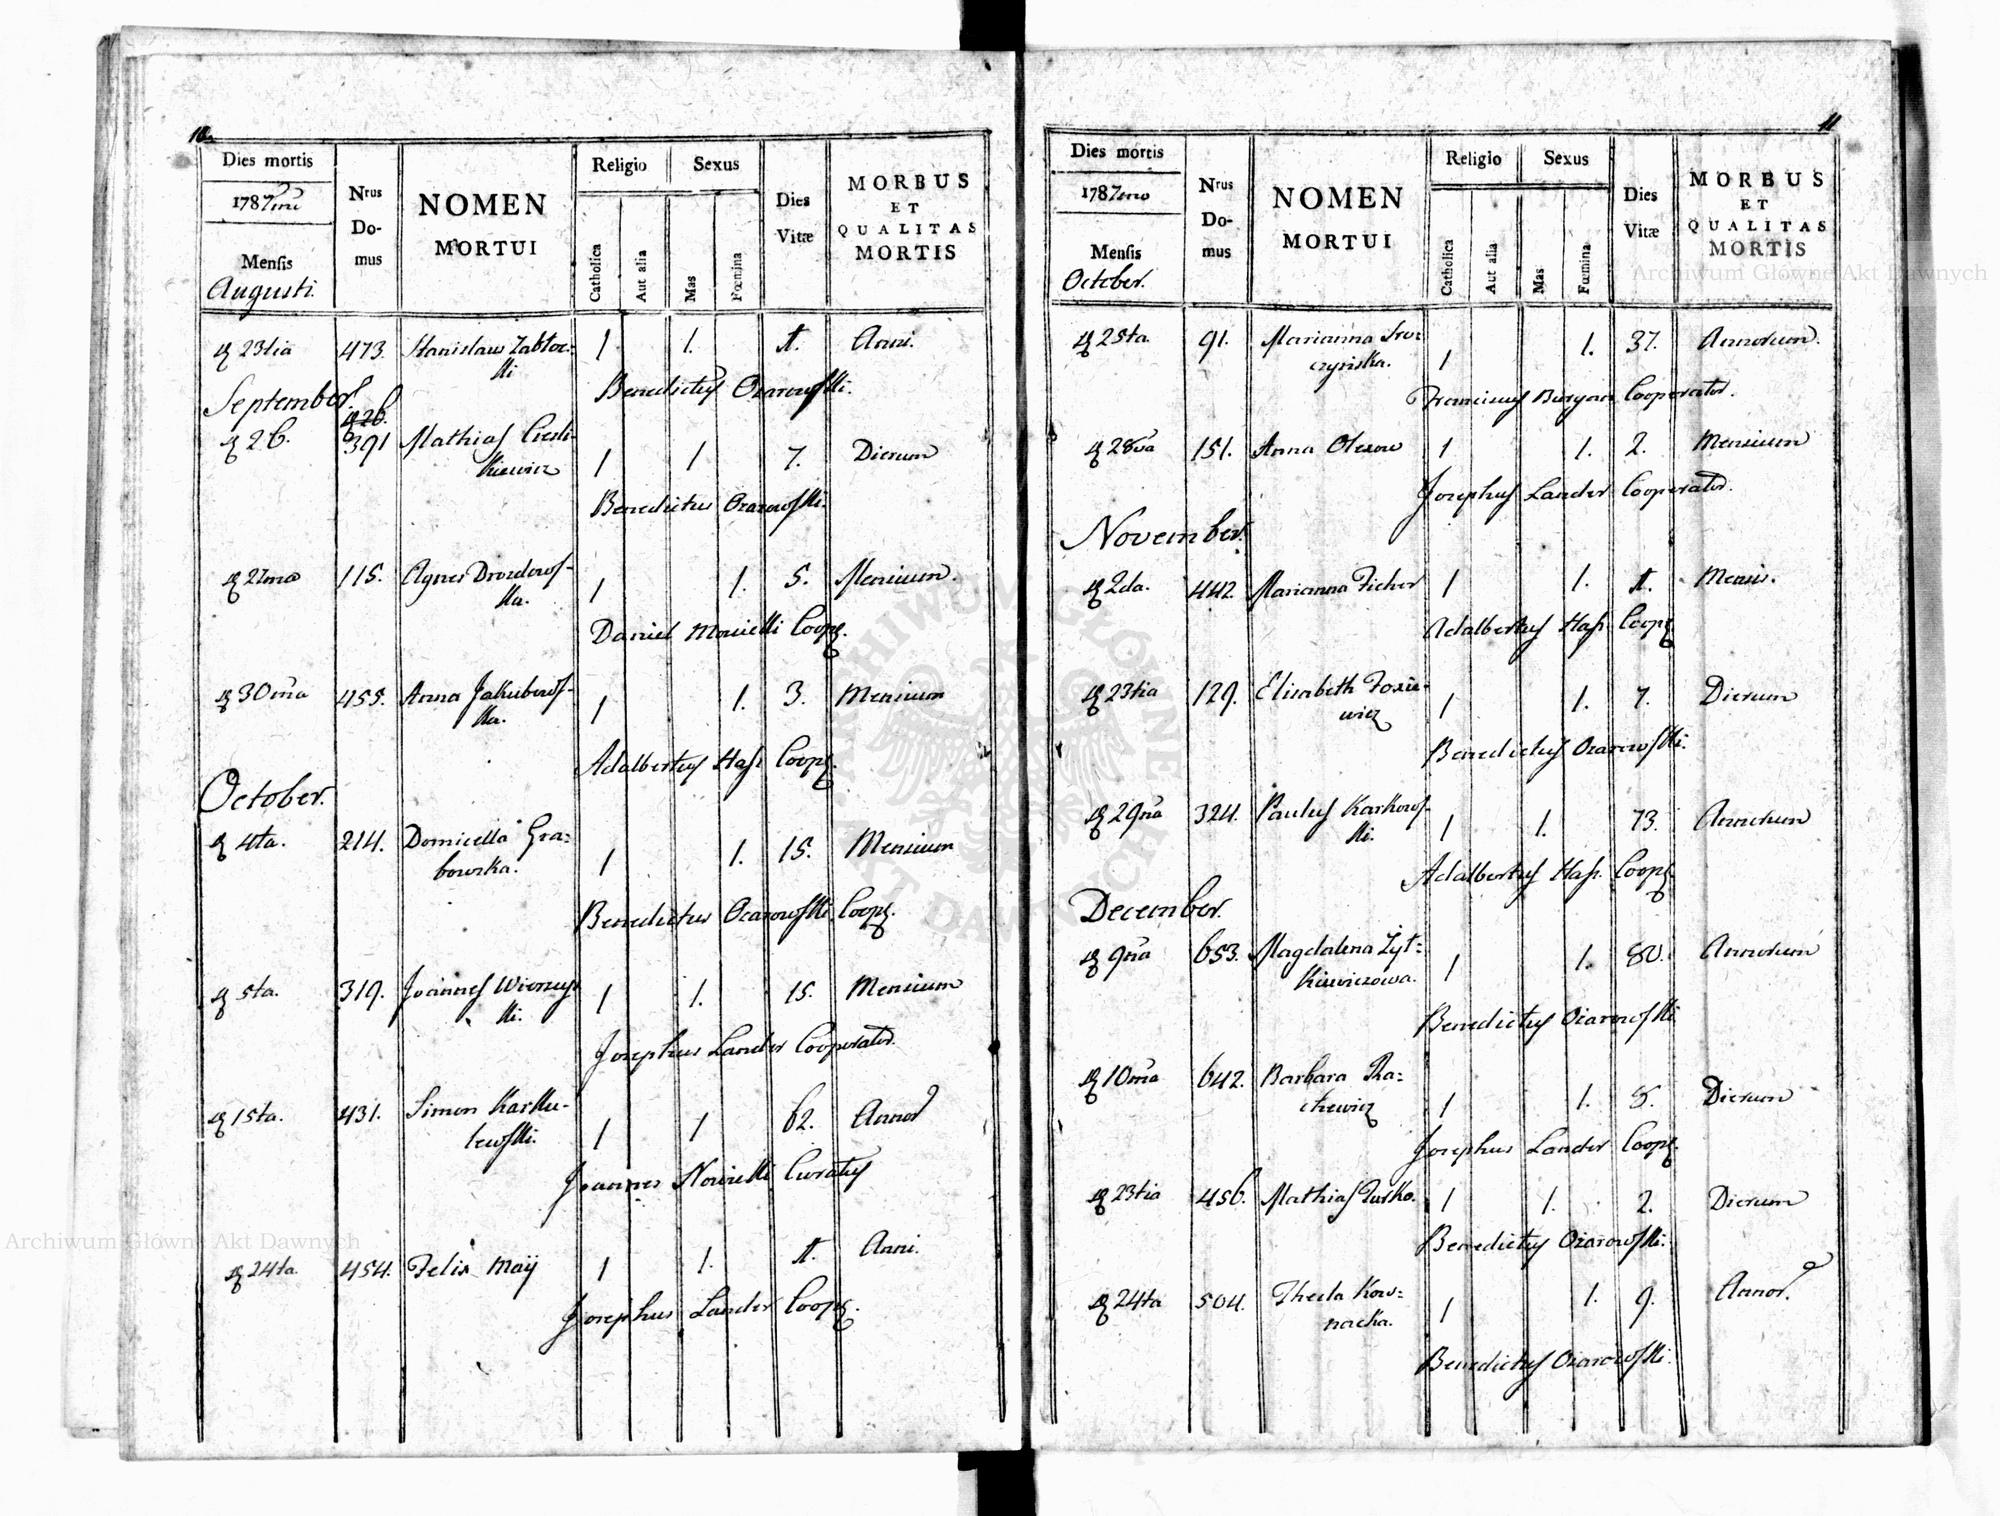 10.
Dies mortis
1787mi
Mensis
Augusti.
Nrus
Do-
mus
NOMEN
MORTUI
Religio
Catholica
Aut alia
Sexus
Mas
Fœmina
Dies
Vitæ
MORBUS
ET
QUALITAS
MORTIS
23tia 473. Stanislaus Zabłoc- 1 1. 1. Anni.
ki
Benedictus Ozarowski.
September.
26. 391 Mathias Ciesli- 1 1 7. Dierum
kiewicz
Benedictus Ozarowski.
27ma 115. Agnes Drozdows- 1 1. 5. Mensium.
ka.
Daniel Coop.
30ma 455. Anna Jakubows- 1 1. 3. Mensium
ka.
Adalbertus Hass Coop.
October.
4ta. 214. Domicella Gra= 1 1. 15. Mensium
bowska.
Benedictus Ozarowski Coop.
5ta. 319. Joannes 1 1. 15. Mensium
ki.
Josephus Lander Cooperator.
1sta. 431. Simon 1 1 62. Annor
lewski.
Joannes Curatus
24ta. 454. Felix Maÿ 1 1. 1. Anni.
Josephus Lander Coop.
11
Dies mortis
1787mo
Mensis
October.
Nrus
Do-
mus
NOMEN
MORTUI
Religio
Catholica
Aut alia
Sexus
Mas
Fœmina
Dies
Vitæ
MORBUS
ET
QUALITAS
MORTIS
25ta. 91. Marianna 1 1. 37. Annorum.
czynska.
Franciscus Burgan Cooperator.
28va 151. Anna Olexow 1 1. 2. Mensium
Josephus Lander Cooperator.
November.
2da. 442. Marianna Ficher 1 1. 1. Mensis.
Adalbertus Hass Coop
23tia 129. Elisabeth Foxie- 1 1. 7. Dierum
wicz
Benedictus Ozarowski.
29na 324. Paulus Karkows- 1 1. 73. Annorum
ki.
Adalbertus Hass. Coop
December.
9na 653. Magdalena Żyt= 1 1. 80. Annorum
kiewiczowa.
Benedictus Ozarowski
10ma 642. Barbara Ra= 1 1. 8. Dierum
ckewicz
Josephus Lander Coop.
23tia 456. Mathias Turko. 1 1. 2. Dierum
Benedictus Ozarowski.
24ta 504. Thecla Kow= 1 1. 9. Annor.
nacka.
Benedictus Ozarowski.
Archiwum Główne Akt Dawnych
Archiwum Główne Akt Dawnych
ARCHIWUM GŁÓWNE AKT DAWNYCH